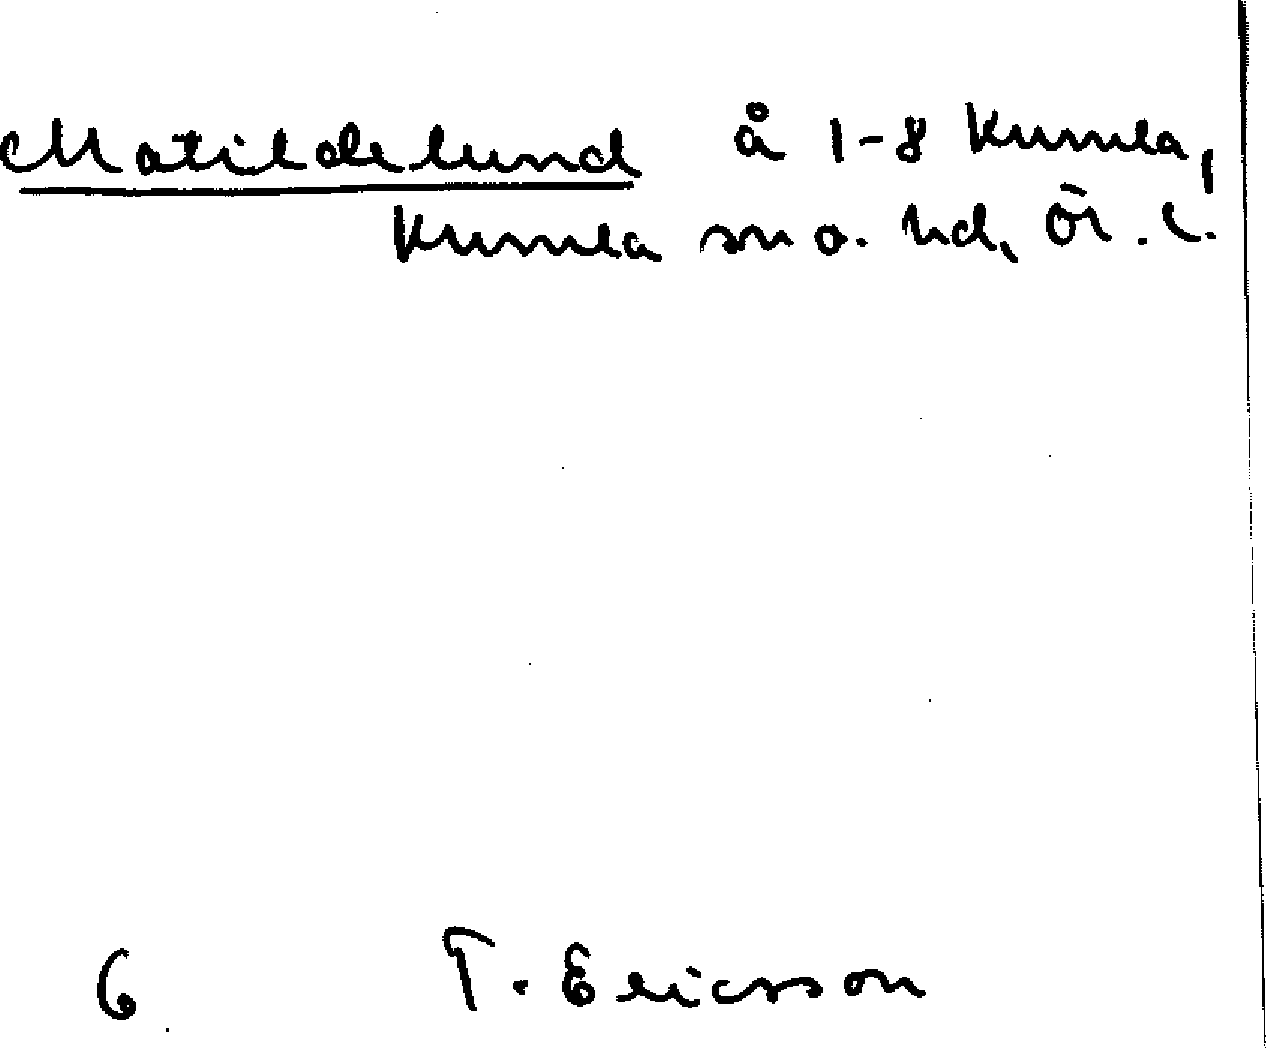 Matildelund å 1-8 Kumla,
Kumla sn o. hd, Ör. l.
6 T. Ericsson